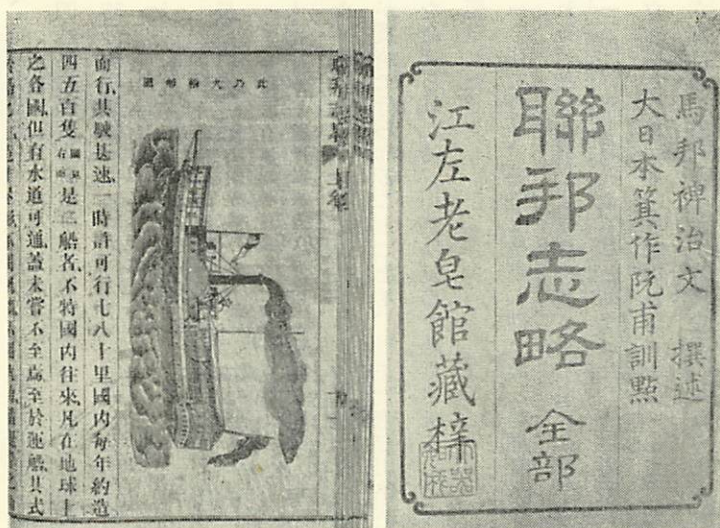 馬邦禆治文 撰述
大日本箕作阮甫訓點
聯邦志略 全部
江左老皂館藏梓
聯邦志畧 上卷
此乃火輪船圖
而行其駛甚速一時許可行七八十里國內每年約造
四五百隻是二船者不特國內往來凡在地球上
之各國但有水道可通蓋未嘗不至焉至於運船其式